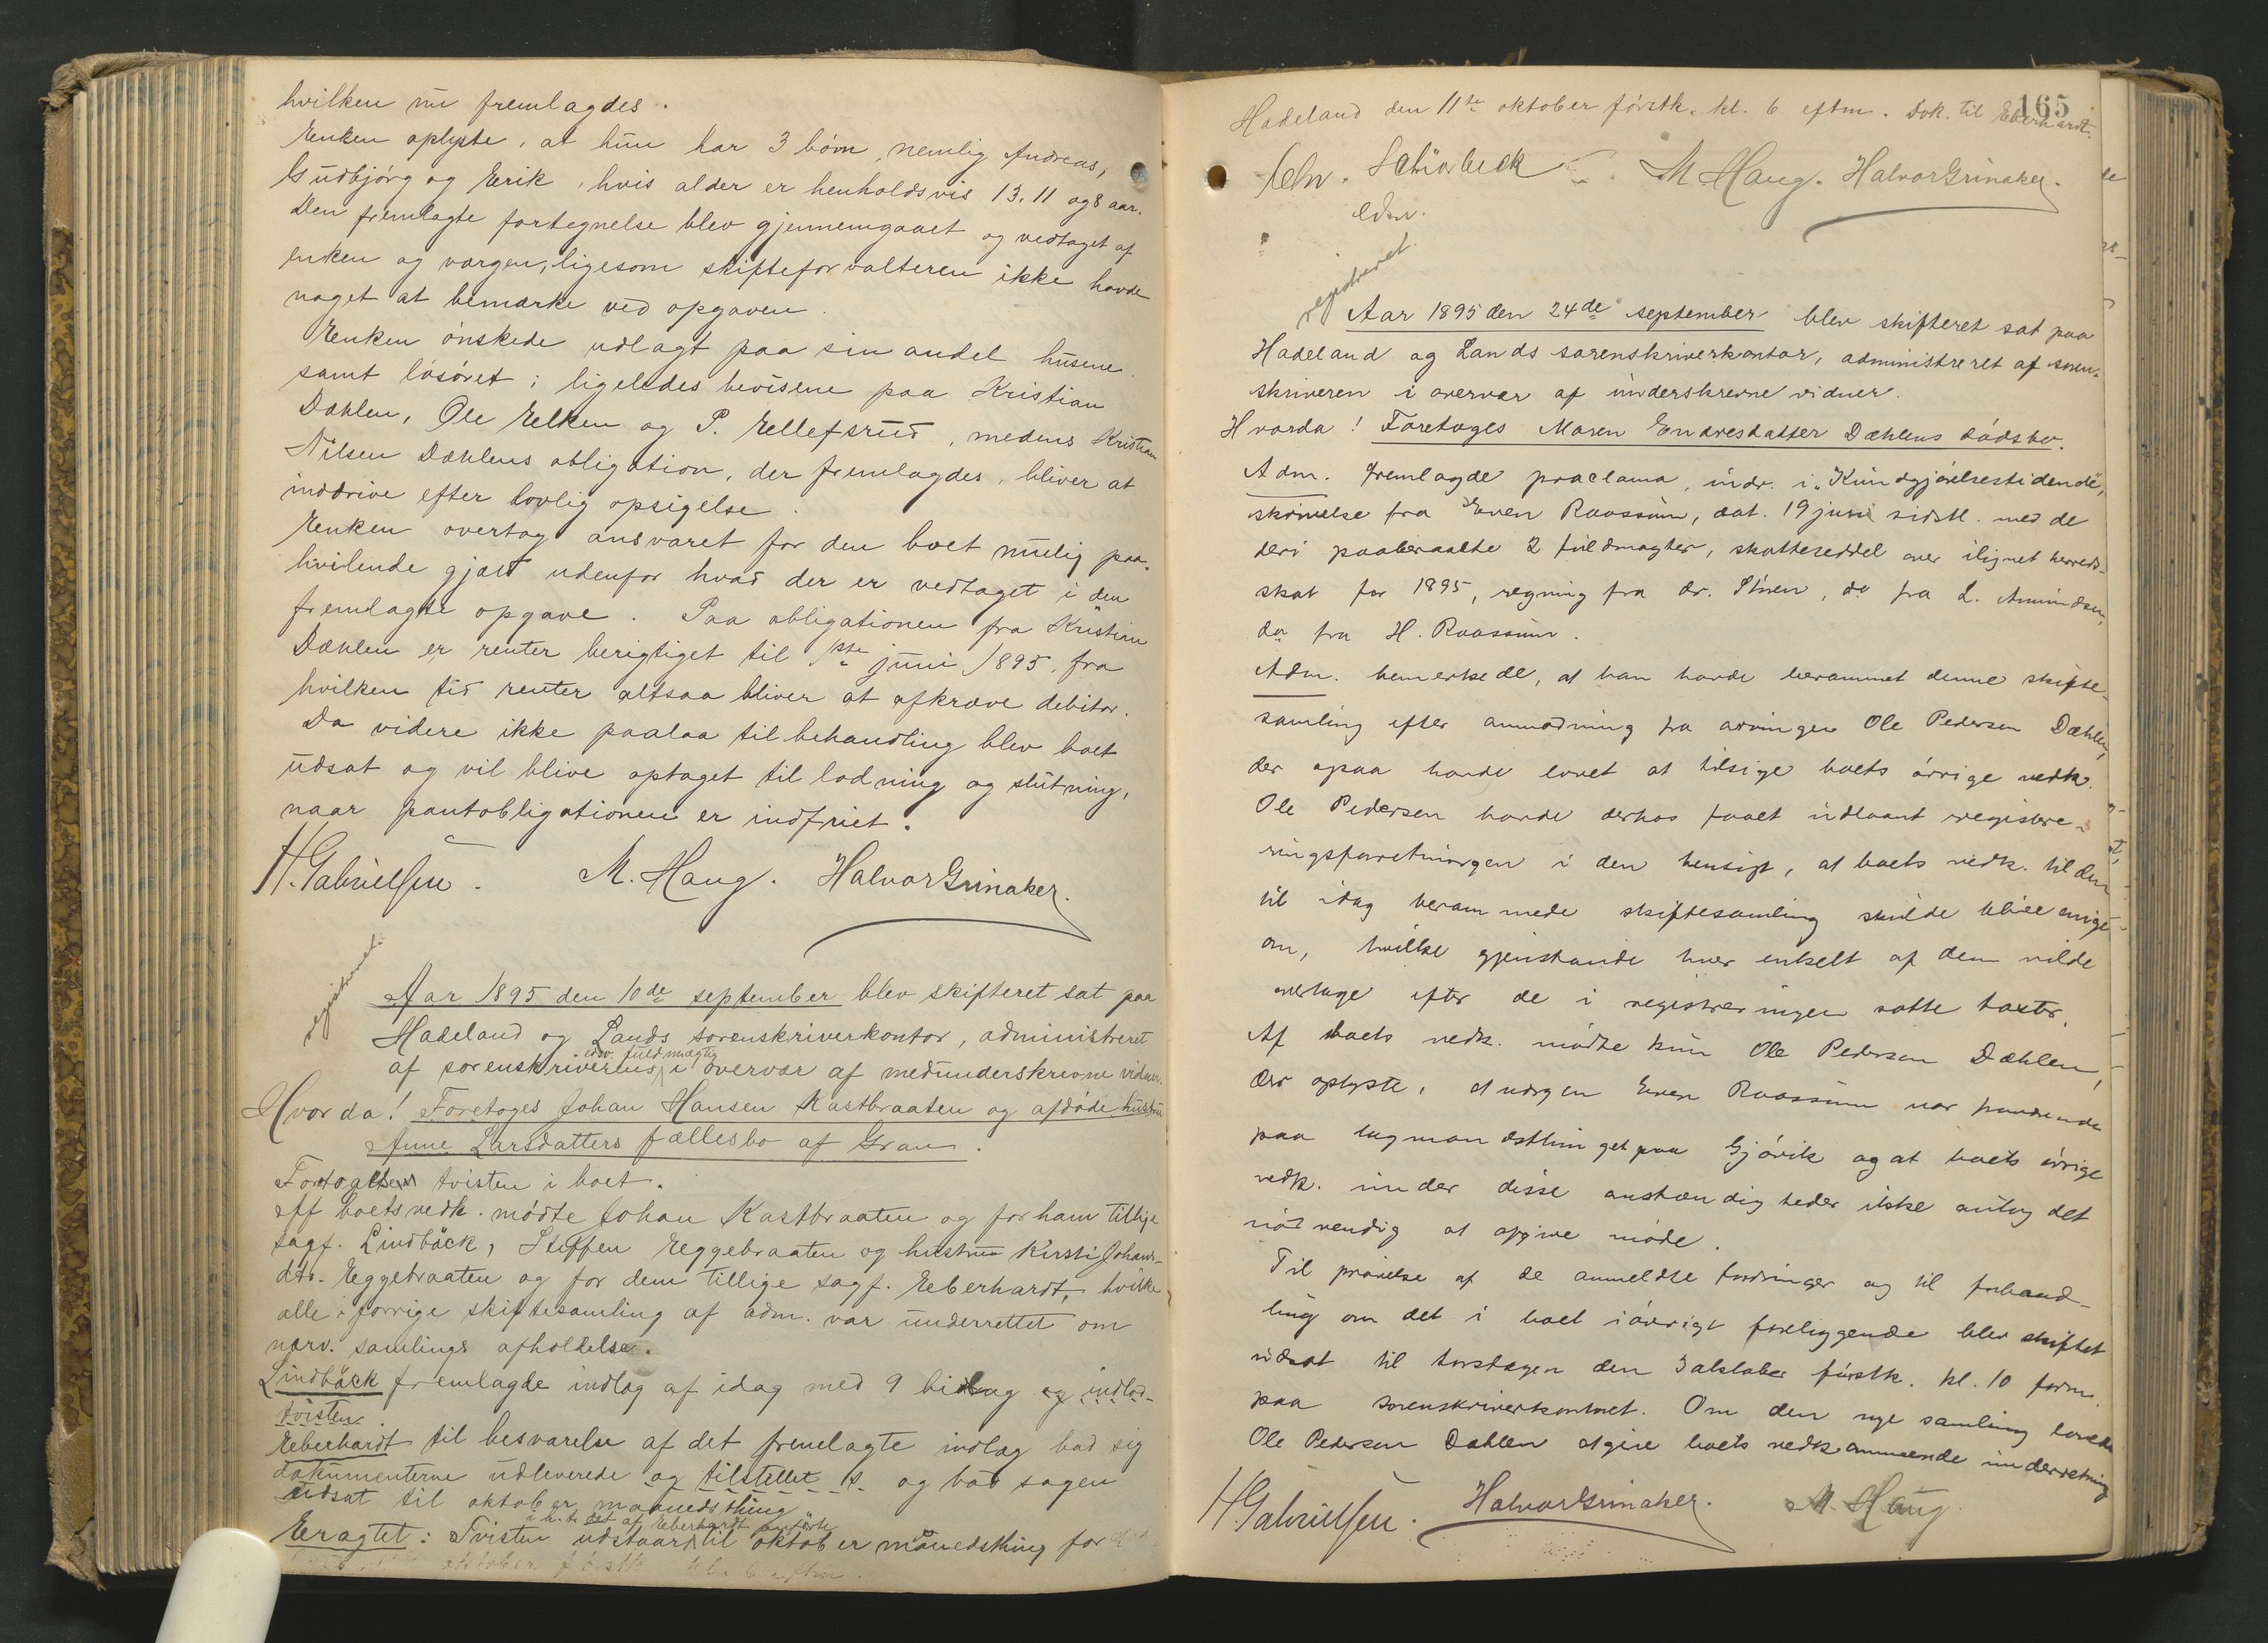 hvilken nu fremlagdes.
Enken oplyste, at hun har 3 börn, nemlig Andreas,
Gudbjörg og Erik, hvis alder er henholdsvis 13, 11 og 8 aar.
Den fremlagte fortegnelse blev gjennemgaaet og vedtaget af
enken og værgen, ligesom skifteforvalteren ikke havde
noget at bemærke ved opgaven.
Enken önskede udlagt paa sin andel husene
samt lösöret; ligeledes bevisene paa Kristian
Dæhlen, Ole Elken og P. Ellefsrud, medens Kristian
Nilsen Dæhlens obligation, der fremlagdes, bliver at
inddrive efter lovlig opsigelse.
Enken overtog ansvaret for den boet mulig paa-
hvilende gjæld udenfor hvad der er vedtaget i den
fremlagte opgave. Paa obligationen fra Kristian
Dæhlen er renter berigtiget til 1ste juni 1895, fra
hvilken tid renter altsaa bliver at afkræve debitor.
Da videre ikke paalaa til behandling blev boet
udsat og vil blive optaget til lodning og slutning,
naar pantobligationen er indfriet.
H. Gabrielsen. M. Haug. Halvor Grinaker.
registreret.
Aar 1895 den 10de september blev skifteret sat paa
Hadeland og Lands sorenskriverkontor, administreret
edsv. fuldmægtig
af sorenskriverens i overvær af medunderskrevne vidner.
Hvorda! Foretoges Johan Hansen Kastbraaten og afdöde hustru
Anne Larsdatters fællesbo af Gran.
Fortogtes tvisten i boet.
Af boets vedk. mödte Johan Kastbraaten og for ham tillige
sagf. Lindbäck, Steffen Eggebraaten og hustru Kirsti Johans-
dtr. Eggebraaten og for dem tillige sagf. Eberhardt, hvilke
alle i forrige skiftesamling af adm. var underrettet om
nærv. samlings afholdelse.
Lindbäck fremlagde indlæg af idag med 9 bilag og indlod
tvisten.
Eberhardt til besvarelse af det fremlagte indlæg bad sig
dokumenterne udleverede og tilstillet s. og bad sagen
udsat til oktober maanedsthing.
i h. t. det af Eberhardt anförte
Eragtet: Tvisten udstaar til oktober maanedsthing for
oktober förstk. kl. 6 eftm.
165
Hadeland den 11te oktober förstk. kl. 6 eftm. Dok. til Eberhardt.
Chr. Schiörbeck M Haug. Halvor Grinaker.
edsv.
registreret.
Aar 1895 den 24de september blev skifteret sat paa
Hadeland og Lands sorenskriverkontor, administreret af soren-
skriveren i overvær af underskrevne vidner.
Hvorda! Foretoges Maren Endresdatter Dæhlens dödsbo.
Adm. fremlagde proclama, indr. i "Kundgjörelsestidende",
skrivelse fra Even Raassum, dat. 19 juni sidstl. med de
deri paaberaabte 2 fuldmagter, skatteseddel over ilignet herreds-
skat for 1895, regning fra dr. Stören, do fra L. Amundsen,
do fra H. Raassum.
Adm. bemerkede, at han havde berammet denne skifte-
samling efter anmodning fra arvingen Ole Pedersen Dæhlen,
der ogsaa havde lovet at tilsige boets övrige vedk.
Ole Pedersen havde derhos faaet udlaant registre-
ringsforretningen i den hensigt, at boets vedk. til den
til idag berammede skiftesamling skulde blive enige
om, hvilke gjenstande hver enkelt af dem vilde
overtage efter de i registreringen satte taxter.
Af boets vedk. mödte kun Ole Pedersen Dæhlen,
der oplyste, at værgen Even Raassum var fraværende
paa lagmandsthinget paa Gjövik og at boets övrige
vedk. under disse omstændigheder ikke antog det
nödvendig at afgive möde.
Til prövelse af de anmeldte fordringer og til forhand-
ling om det i boet iövrigt foreliggende blev skiftet
udsat til torsdagen den 3 oktober förstk. kl. 10 form.
paa sorenskriverkontoret. Om den nye samling lovede
Ole Pedersen Dæhlen at give boets vedkommende underretning
H. Gabrielsen. Halvor Grinaker. M. Haug